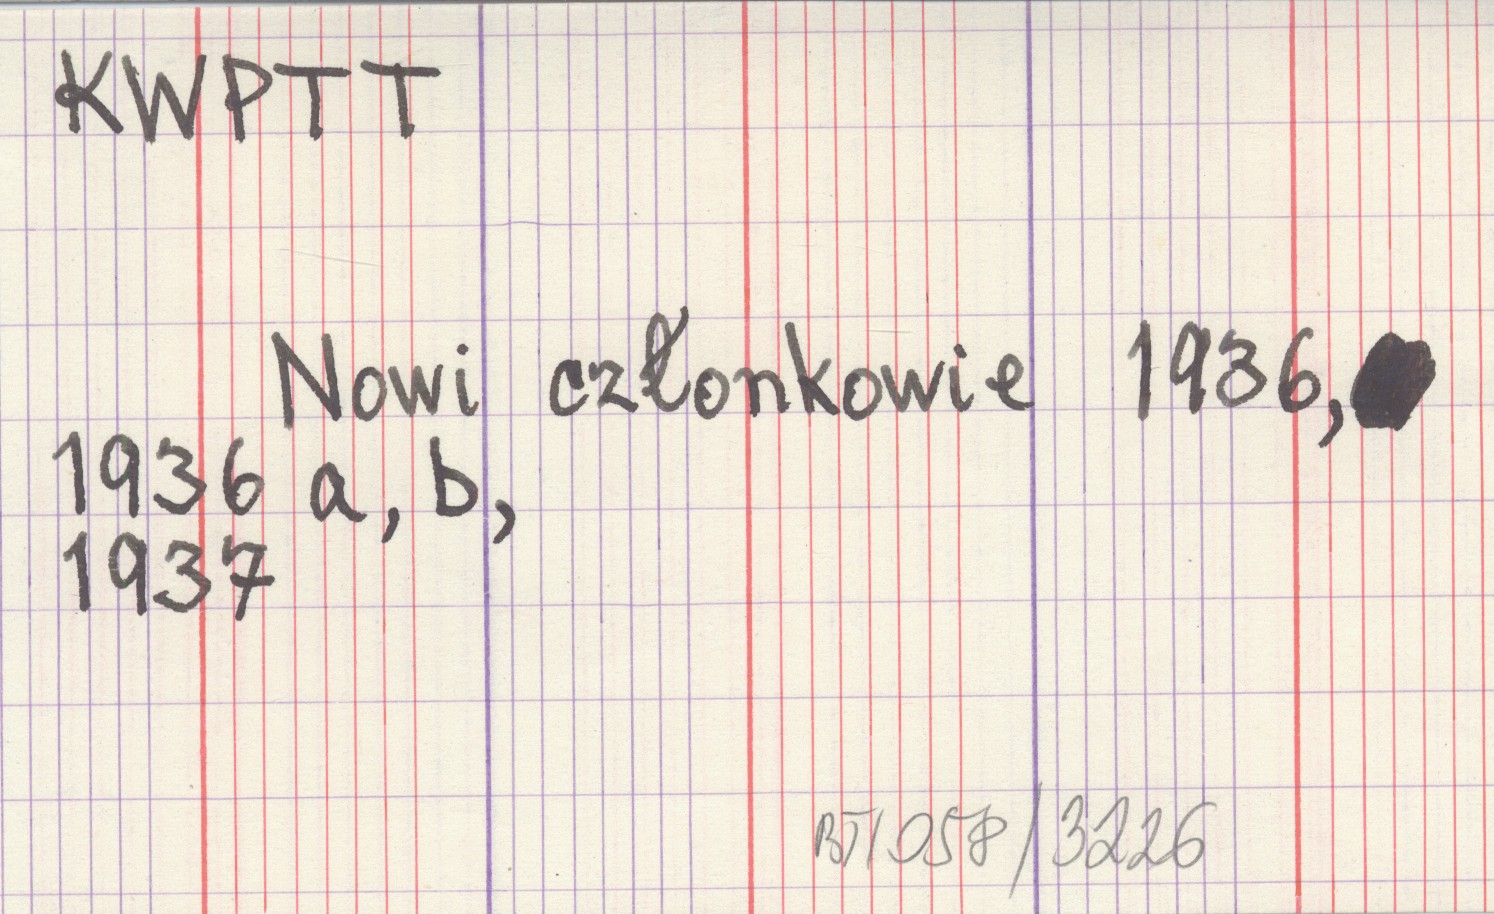 KWPTT
Nowi członkowie 1936,
1936 a, b,
1937
BT/058/3226